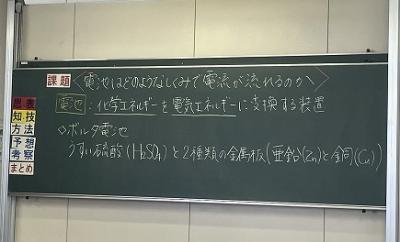 課題 〈電池はどのようなしくみで電流が流れるのか〉
電池：化学エネルギーを電気エネルギーに変換する装置
◇ボルタ電池
うすい硫酸(H₂SO₄)と2種類の金属板(亜鉛(Zn)と銅(Cu)
思 表
知 技
方 法
予 想
考 察
まとめ